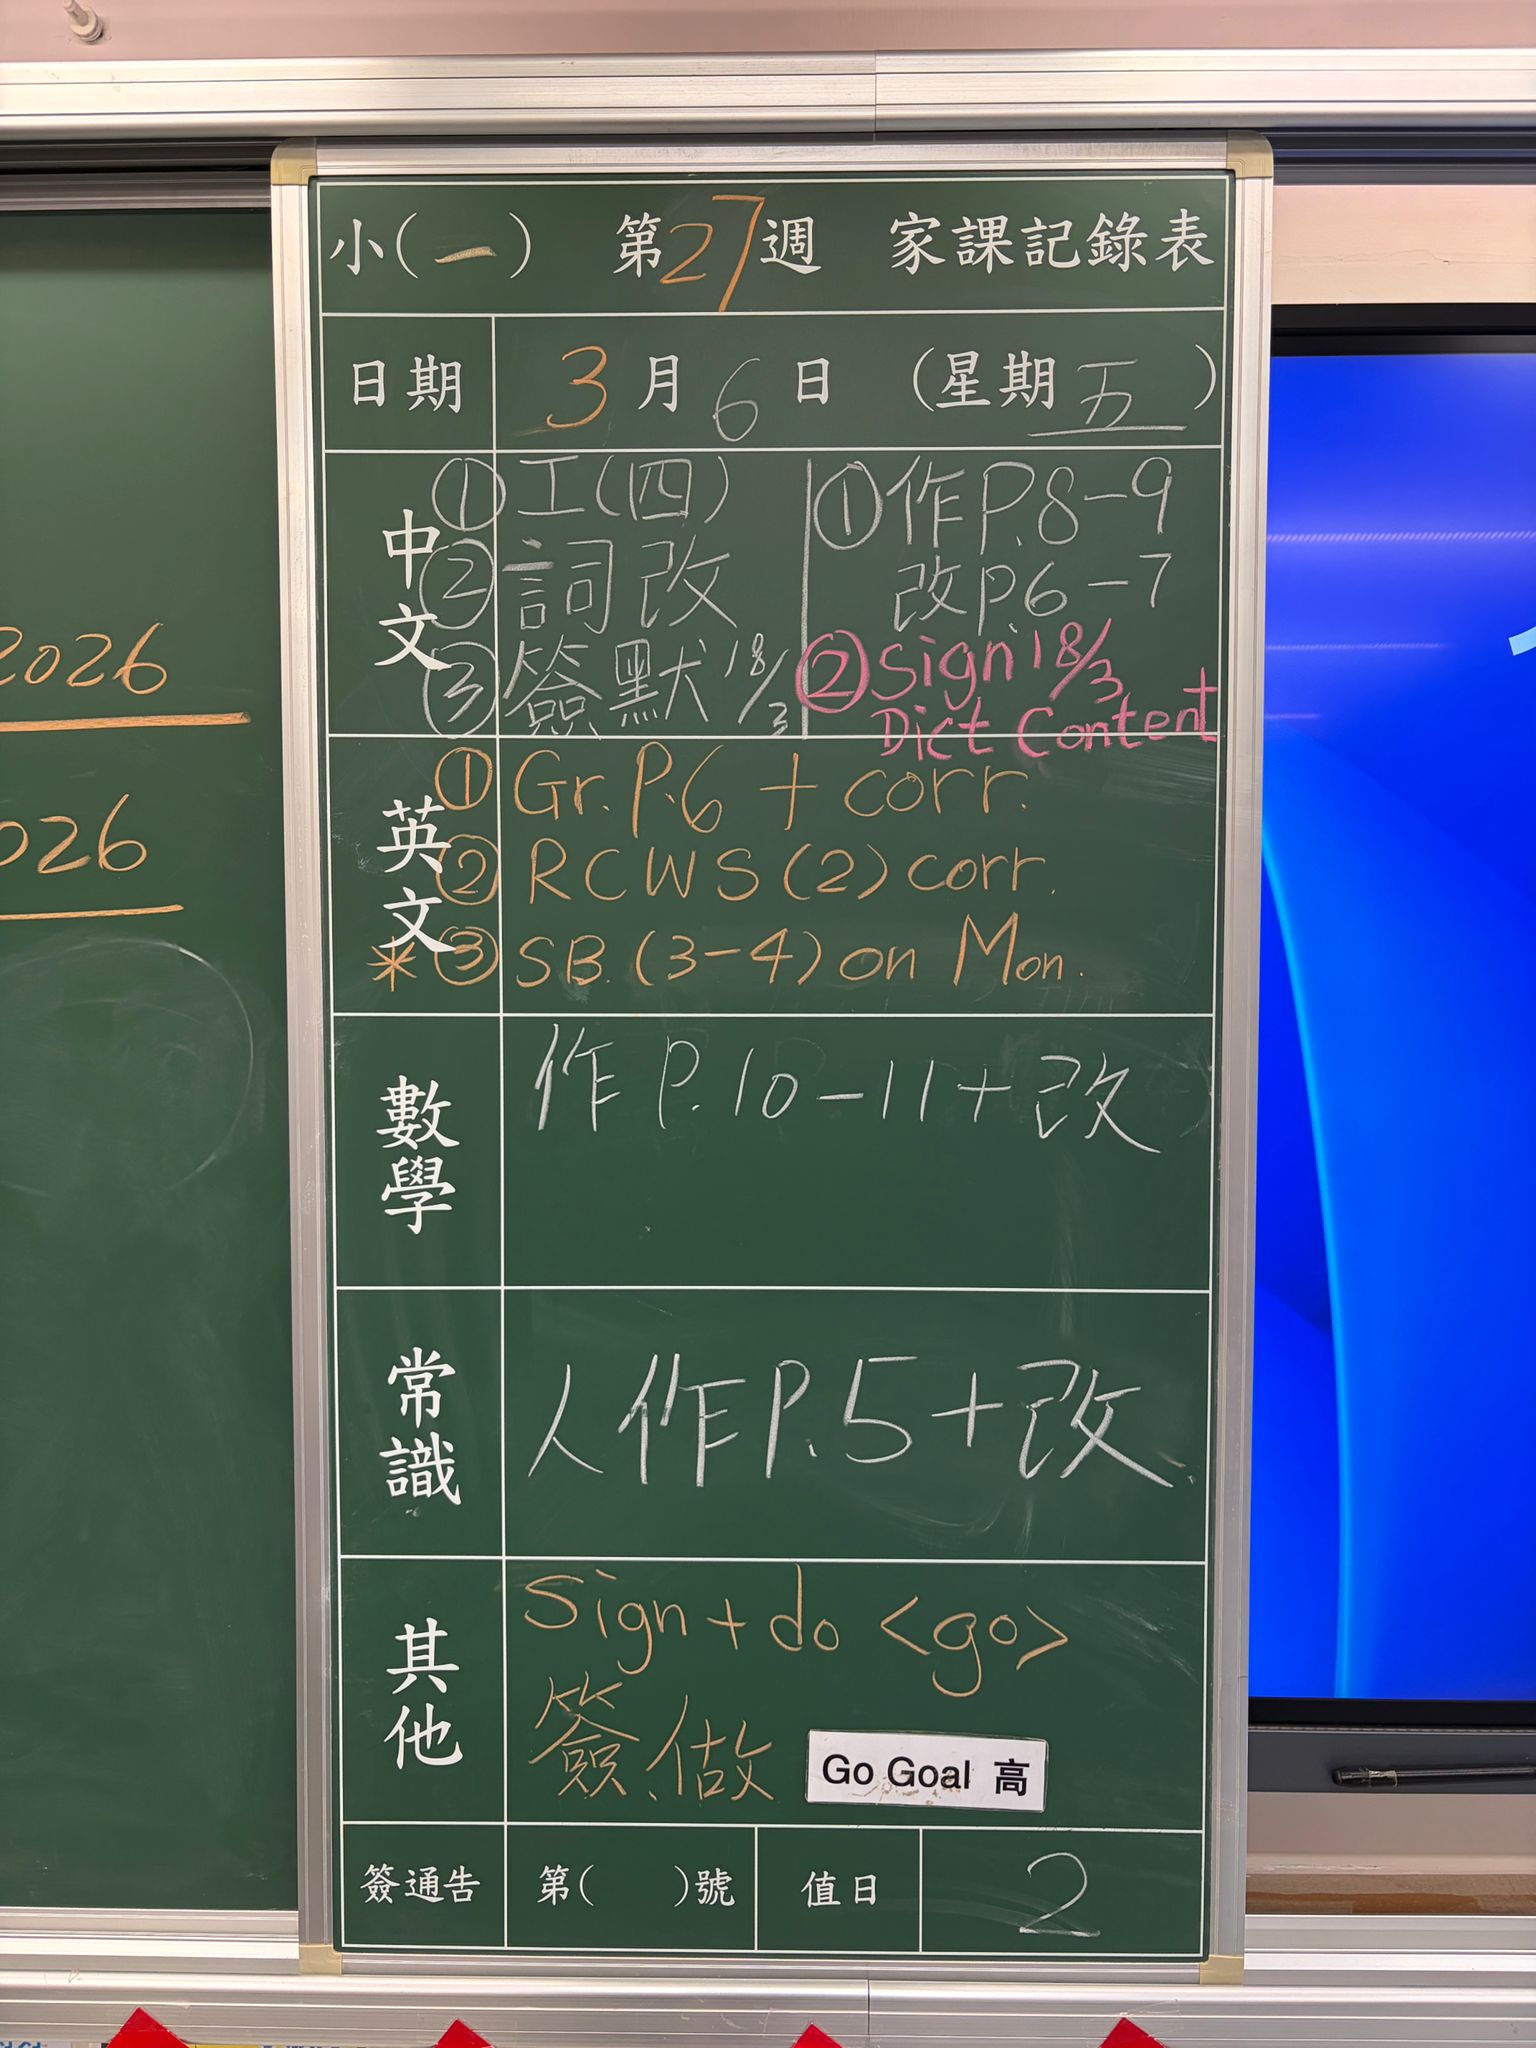 小(一) 第27週 家課記錄表
日期 3月6日 (星期五)
中文
①工(四)
②詞改
③簽默18/3
①作P.8-9
改P.6-7
②Sign 18/3
Dict Content
英文
①Gr. P.6 + corr.
②RCWS (2) corr.
*③SB. (3-4) on Mon.
數學
作P.10-11+改
常識
人作P.5+改
其他
Sign + do <go>
簽、做 Go Goal 高
簽通告 第( )號 值日 2
2026
026